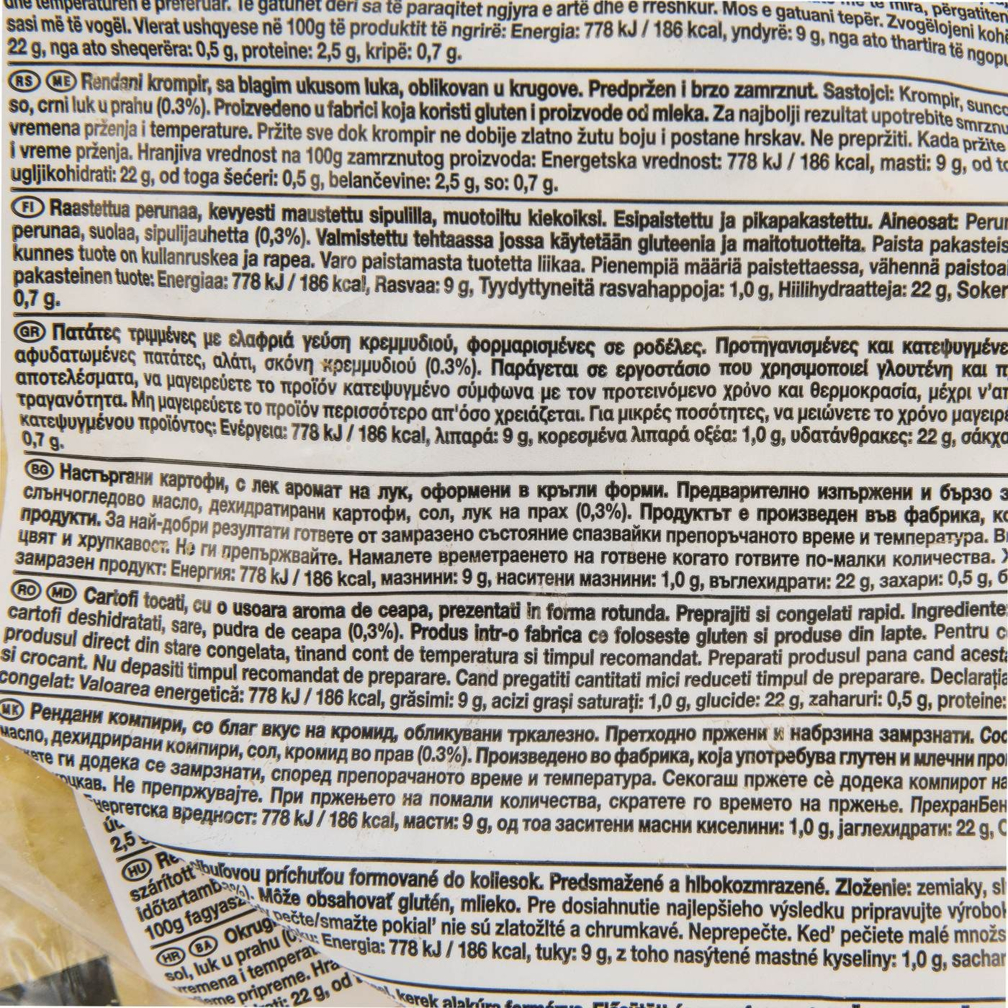 dhe temperaturen e preferuar. Te gatuhet deri sa të paraqitet ngjyra e artë dhe e rreshkur. Mos e gatuani tepër. Zvogëlojeni kohë
sasi më të vogël. Vlerat ushqyese në 100g të produktit të ngrirë: Energia: 778 kJ / 186 kcal, yndyrë: 9 g, nga ato thartira të ngopu
22 g, nga ato sheqerëra: 0,5 g, proteine: 2,5 g, kripë: 0,7 g.
RS ME Rendani krompir, sa blagim ukusom luka, oblikovan u krugove. Predpržen i brzo zamrznut. Sastojci: Krompir, sunco
so, crni luk u prahu (0.3%). Proizvedeno u fabrici koja koristi gluten i proizvode od mleka. Za najbolji rezultat upotrebite smrznu
vremena prženja i temperature. Pržite sve dok krompir ne dobije zlatno žutu boju i postane hrskav. Ne prepržiti. Kada pržite
i vreme prženja. Hranjiva vrednost na 100g zamrznutog proizvoda: Energetska vrednost: 778 kJ / 186 kcal, masti: 9 g, od to
ugljikohidrati: 22 g, od toga šećeri: 0,5 g, belančevine: 2,5 g, so: 0,7 g.
FI Raastettua perunaa, kevyesti maustettu sipulilla, muotoiltu kiekoiksi. Esipaistettu ja pikapakastettu. Aineosat: Perun
perunaa, suolaa, sipulijauhetta (0,3%). Valmistettu tehtaassa jossa käytetään gluteenia ja maitotuotteita. Paista pakasteis
kunnes tuote on kullanruskea ja rapea. Varo paistamasta tuotetta liikaa. Pienempiä määriä paistettaessa, vähennä paistoai
pakasteinen tuote: Energiaa: 778 kJ / 186 kcal, Rasvaa: 9 g, Tyydyttyneitä rasvahappoja: 1,0 g, Hiilihydraatteja: 22 g, Soker
0,7 g.
GR Πατάτες τριμμένες με ελαφριά γεύση κρεμμυδιού, φορμαρισμένες σε ροδέλες. Προτηγανισμένες και κατεψυγμένε
αφυδατωμένες πατάτες, αλάτι, σκόνη κρεμμυδιού (0.3%). Παράγεται σε εργοστάσιο που χρησιμοποιεί γλουτένη και π
αποτελέσματα, να μαγειρεύετε το προϊόν κατεψυγμένο σύμφωνα με τον προτεινόμενο χρόνο και θερμοκρασία, μέχρι ν'απ
τραγανότητα. Μη μαγειρεύετε το προϊόν περισσότερο απ'όσο χρειάζεται. Για μικρές ποσότητες, να μειώνετε το χρόνο μαγειρ
κατεψυγμένου προϊόντος: Ενέργεια: 778 kJ / 186 kcal, λιπαρά: 9 g, κορεσμένα λιπαρά οξέα: 1,0 g, υδατάνθρακες: 22 g, σάκχα
0,7 g.
BG Настъргани картофи, с лек аромат на лук, оформени в кръгли форми. Предварително изпържени и бързо з
слънчогледово масло, дехидратирани картофи, сол, лук на прах (0,3%). Продуктът е произведен във фабрика, ко
продукти. За най-добри резултати гответе от замразено състояние спазвайки препоръчаното време и температура. В
цвят и хрупкавост. Не ги препържвайте. Намалете времетраенето на готвене когато готвите по-малки количества. Х
замразен продукт: Енергия: 778 kJ / 186 kcal, мазнини: 9 g, наситени мазнини: 1,0 g, въглехидрати: 22 g, захари: 0,5 g, б
RO MD Cartofi tocati, cu o usoara aroma de ceapa, prezentati in forma rotunda. Preprajiti si congelati rapid. Ingrediente:
cartofi deshidratati, sare, pudra de ceapa (0,3%). Produs intr-o fabrica ce foloseste gluten si produse din lapte. Pentru c
produsul direct din stare congelata, tinand cont de temperatura si timpul recomandat. Preparati produsul pana cand acest
si crocant. Nu depasiti timpul recomandat de preparare. Cand pregatiti cantitati mici reduceti timpul de preparare. Declaraţia
congelat: Valoarea energetică: 778 kJ / 186 kcal, grăsimi: 9 g, acizi graşi saturaţi: 1,0 g, glucide: 22 g, zaharuri: 0,5 g, proteine:
MK Рендани компири, со благ вкус на кромид, обликувани тркалезно. Претходно пржени и набрзина замрзнати. Сос
масло, дехидрирани компири, сол, кромид во прав (0.3%). Произведено во фабрика, која употребува глутен и млечни про
жете ги додека се замрзнати, според препорачаното време и температура. Секогаш пржете сè додека компирот н
цкав. Не препржувајте. При пржењето на помали количества, скратете го времето на пржење. ПрехранБен
Енергетска вредност: 778 kJ / 186 kcal, масти: 9 g, од тоа заситени масни киселини: 1,0 g, јаглехидрати: 22 g, С
2,5
HU Re
szárított
időtartamb
100g fagyasz
HR BA Okrug
sol, luk u prahu (0
vremena i temperat
pripreme. Hra
22 g, od
cibuľovou príchuťou formované do koliesok. Predsmažené a hlbokozmrazené. Zloženie: zemiaky, sl
Môže obsahovať glutén, mlieko. Pre dosiahnutie najlepšieho výsledku pripravujte výrobok
pečte/smažte pokiaľ nie sú zlatožlté a chrumkavé. Neprepečte. Keď pečiete malé množs
Energia: 778 kJ / 186 kcal, tuky: 9 g, z toho nasýtené mastné kyseliny: 1,0 g, sachar